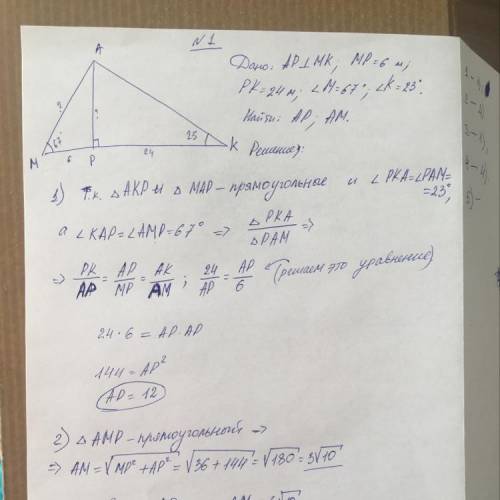 №1
Дано: AP⊥MK, MP=6 м,
PK=24 м, ∠M=67°, ∠K=23°.
Найти: AP, AM.
Решение:
A
?
?
67°
25
M
6
P
24
K
1) т.к. △AKP и △MAP - прямоугольные и ∠PKA=∠PAM=
=23°,
а ∠KAP=∠AMP=67° => △PKA/△PAM =>
=> PK/AP = AP/MP = AK/AM ; 24/AP = AP/6 (решаем это уравнение)
24·6 = AP·AP
144 = AP²
AP = 12
2) △AMP - прямоугольный =>
=> AM = √MP² + AP² = √36 + 144 = √180 = 3√10
1-
2-
3-
4-
5)-